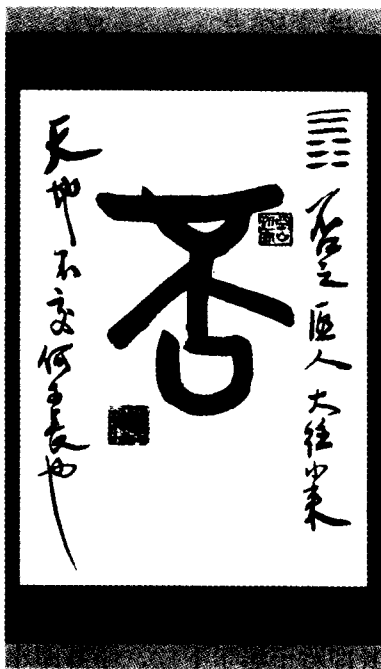 否之匪人大往小来
否
天地不交何可長也